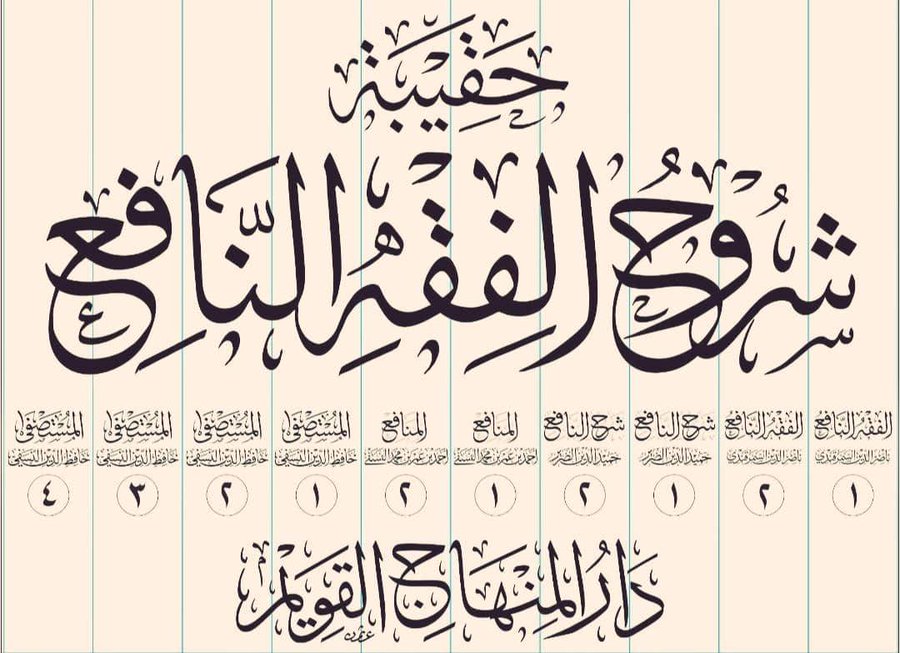 حَقِيبَة
شُرُوحُ الفِقْهُ النَّافِع
الفقه النافع
ناصر الدين السمرقندي
١
الفقه النافع
ناصر الدين السمرقندي
٢
شرح النافع
حميد الدين الضرير
١
شرح النافع
حميد الدين الضرير
٢
المنافع
احمد بن عمر بن محمد النسفي
١
المنافع
احمد بن عمر بن محمد النسفي
٢
المستصفى
حافظ الدين النسفي
١
المستصفى
حافظ الدين النسفي
٢
المستصفى
حافظ الدين النسفي
٣
المستصفى
حافظ الدين النسفي
٤
دَارُ المِنْهَاجِ القَوِيمْ